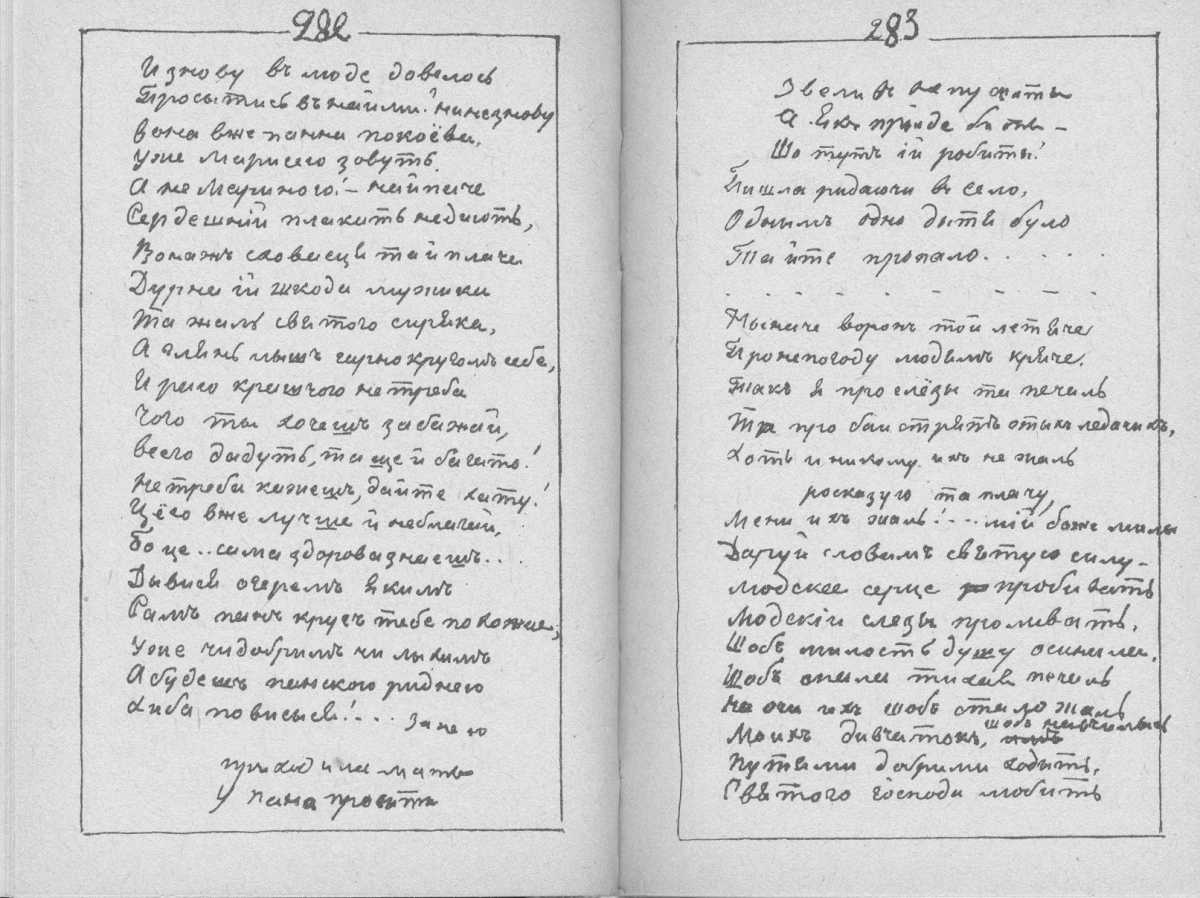 282
И знову въ люде довелось
Просытись въ найми. Нинезнову
Вона вже панна покоёва,
Уже Марисею зовуть
А не Мариною! — найпаче
Сердешній плакать недають,
Вонажъ сховаецця тай плаче
Дурна ій шкода мужика
Та жаль святого сиряка,
А глянь лышъ гарно кругомъ себе,
И раю кращчого нетреба
Чого ты хочешъ забажай,
Всего дадуть, та ще й багато!
Нетреба кажешъ, дайте хату!
Цёго вже лучше й неблагай,
Бо це .. сама здорова знаешъ ...
Дывися очерёмъ якимъ
Самъ панъ кругъ тебе похожае,
Уже чи добримъ чи лыхимъ
А будешъ панского риднею
Хиба повисыся! ... За нею
приходила мать
У пана просить
283
Звеливъ непускать
А якъ прійде быть —
Що тутъ ій робить!
Пишла ридаючи въ село,
Однымъ одно дытя було
Тай те пропало . . . . .
Мыначе воронъ той летяче
Про непогоду людымъ кряче.
Такъ я про слёзы та печаль
Та про байстрятъ отыхъ ледачихъ,
Хоть и никому ихъ не жаль
росказую та плачу,
Мени ихъ жаль! ... мій боже милы
Даруй словамъ святую силу —
Людскее серце пробивать
Людскіи слезы проливать,
Щобъ милость душу осинила,
Щобъ спала тихая печаль
На очи ихъ щобъ стало жаль
Моихъ дивчатокъ, щобъ навчились
Путями добрими ходыть,
Святого Господа любить